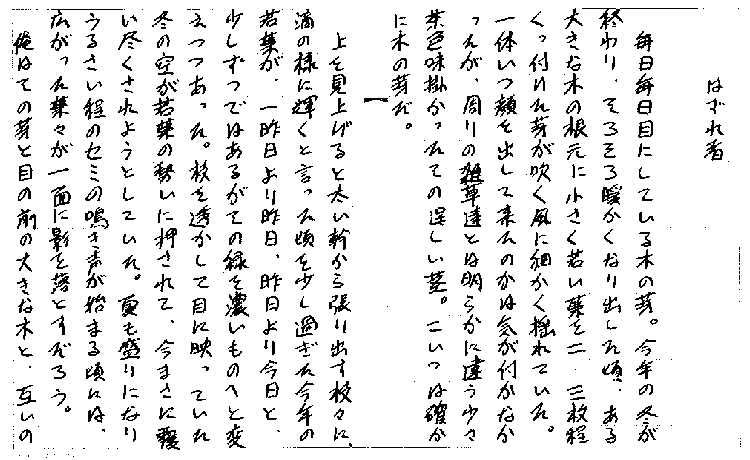 はずれ者
毎日毎日目にしている木の芽。今年の冬が
終わり、そろそろ暖かくなり出した頃、ある
大きな木の根元に小さく若い葉を二、三枚程
くっ付けた芽が吹く風に細かく揺れていた。
一体いつ顔を出して来たのかは気が付かなか
ったが、周りの雑草達とは明らかに違う少々
茶色味掛かったその逞しい茎。こいつは確か
に木の芽だ。
上を見上げると太い幹から張り出す枝々に、
滴の様に輝くと言った頃を少し過ぎた今年の
若葉が、一昨日より昨日、昨日より今日と、
少しずつではあるがその緑を濃いものへと変
えつつあった。枝を透かして目に映っていた
冬の空が若葉の勢いに押されて、今まさに覆
い尽くされようとしていた。夏も盛りになり
うるさい程のセミの鳴き声が始まる頃には、
広がった葉々が一面に影を落とすだろう。
俺はその芽と目の前の大きな木と、互いの